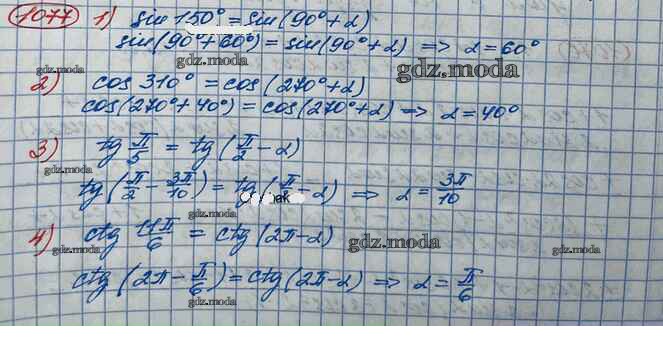 1077 1) sin 150° = sin(90°+α)
sin(90°+60°) = sin(90°+α) => α = 60°
gdz.moda gdz.moda
2) cos 310° = cos(270°+α)
cos(270°+40°) = cos(270°+α) => α = 40°
3) tg π/5 = tg(π/2 - α)
gdz.moda
tg(π/2 - 3π/10) = tg(π/2 - α) => α = 3π/10
4) ctg 11π/6 = ctg(2π-α) gdz.moda
gdz.moda gdz.moda
ctg(2π - π/6) = ctg(2π-α) => α = π/6
gdz.moda